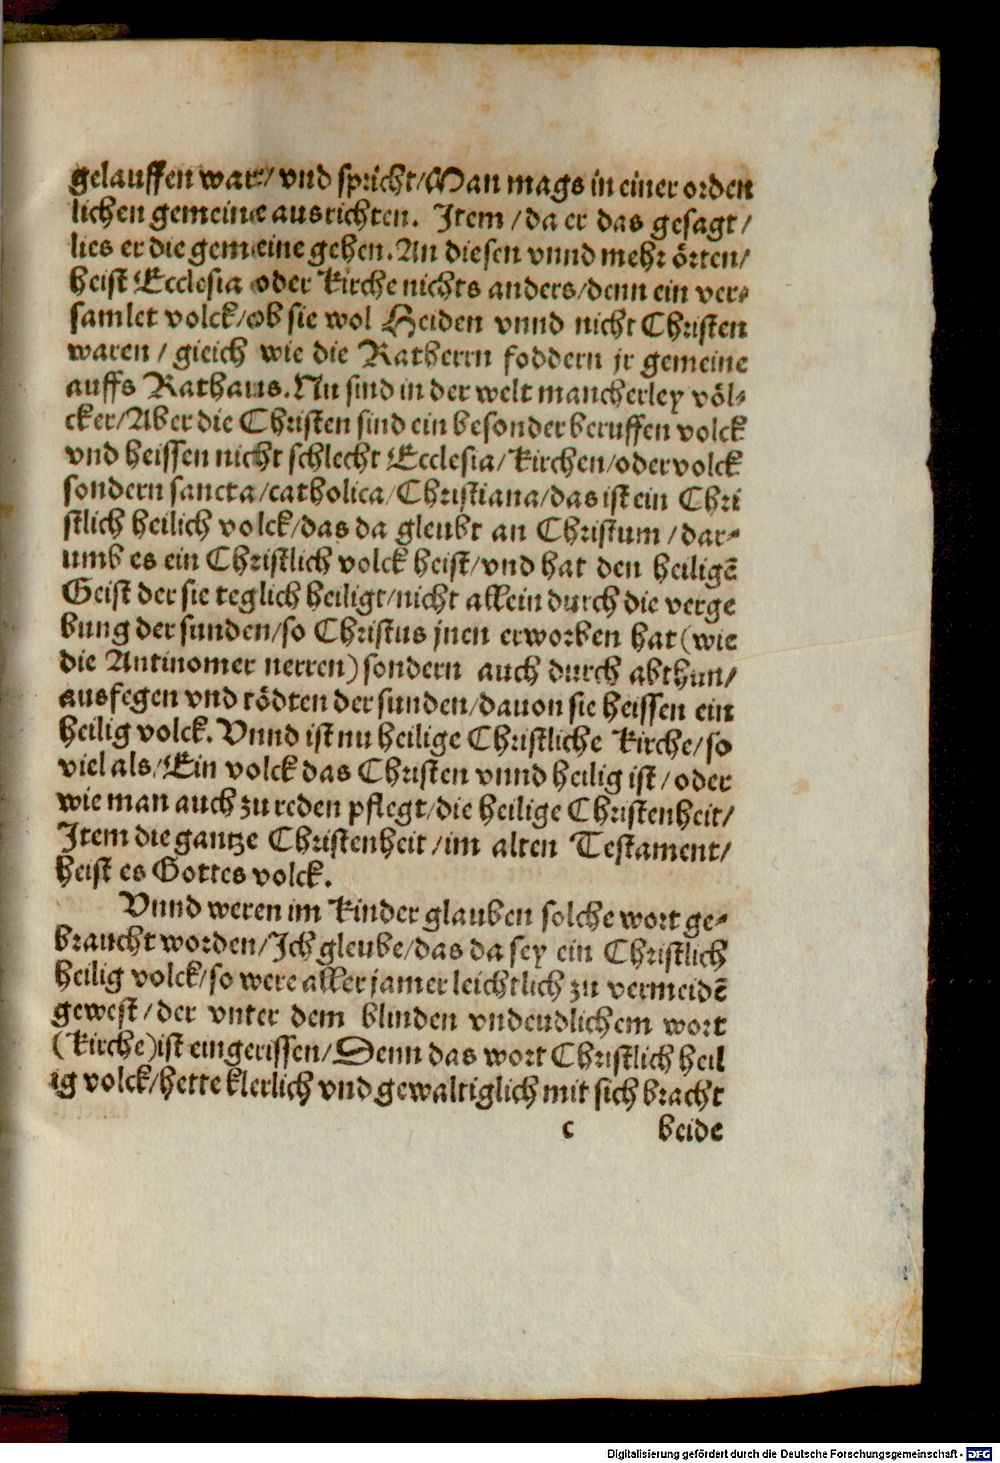 gelauffen war/ vnd spricht/Man mags in einer orden
lichen gemeine ausrichten. Item /da er das gesagt/
lies er die gemeine gehen. An diesen vnnd mehr örten/
heist Ecclesia oder Kirche nichts anders/denn ein ver-
samlet volck/ob sie wol Heiden vnnd nicht Christen
waren / gleich wie die Ratherrn foddern jr gemeine
auffs Rathaus. Nu sind in der welt mancherley völ-
cker/Aber die Christen sind ein besonder beruffen volck
vnd heissen nicht schlecht Ecclesia/Kirchen/oder volck
sondern sancta/catholica/Christiana/das ist ein Chri
stlich heilich volck/das da gleubt an Christum /dar-
umb es ein Christlich volck heist/vnd hat den heiligē
Geist der sie teglich heiligt/nicht allein durch die verge
bung der sunden/so Christus jnen erworben hat (wie
die Antinomer nerren) sondern auch durch abthun/
ausfegen vnd tödten der sunden/dauon sie heissen ein
heilig volck. Vnnd ist nu heilige Christliche Kirche/so
viel als/Ein volck das Christen vnnd heilig ist/oder
wie man auch zu reden pflegt/die heilige Christenheit/
Item die gantze Christenheit/im alten Testament/
heist es Gottes volck.
Vnnd weren im Kinder glauben solche wort ge-
braucht worden/Ich gleube/das da sey ein Christlich
heilig volck/so were aller jamer leichtlich zu vermeidē
gewest/der vnter dem blinden vndeudlichem wort
(Kirche) ist eingerissen/Denn das wort Christlich heil
ig volck/hette klerlich vnd gewaltiglich mit sich bracht
c beide
Digitalisierung gefördert durch die Deutsche Forschungsgemeinschaft - DFG